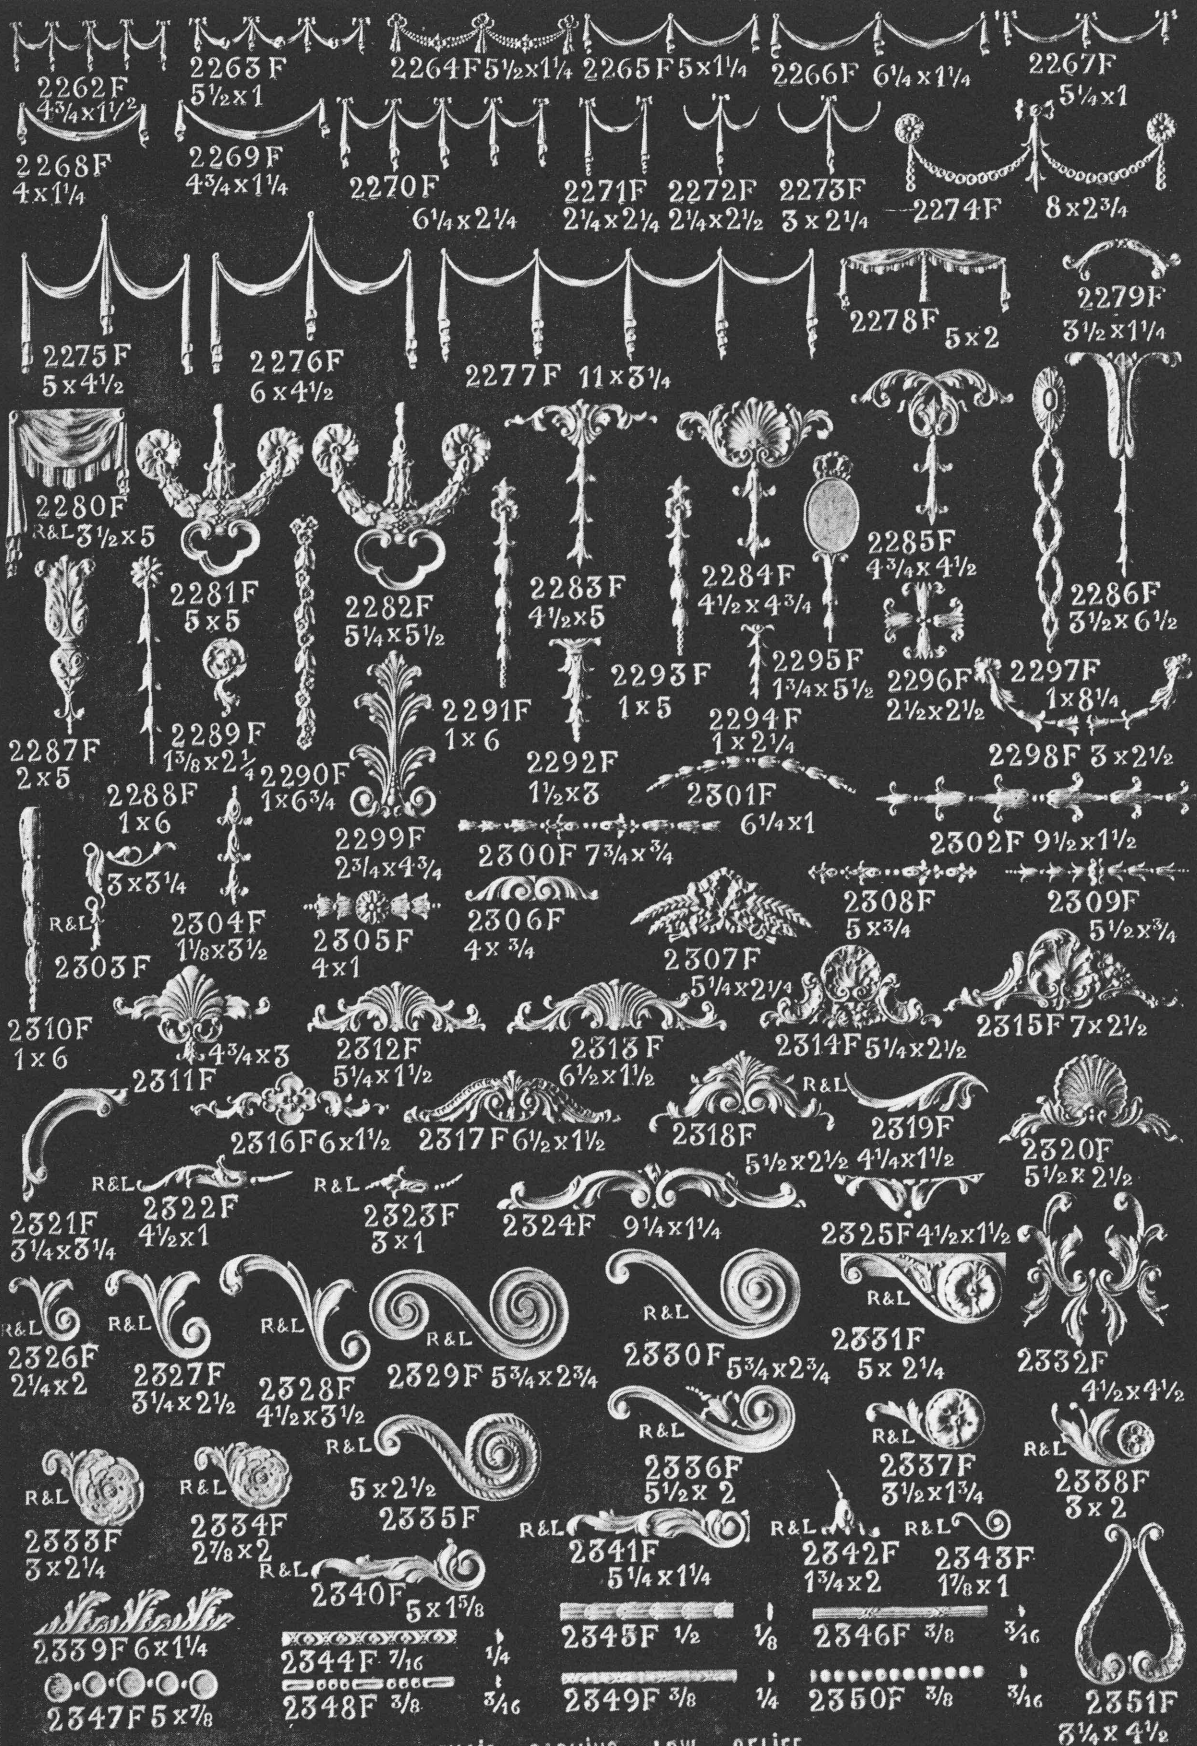 2262F
4¾x1½
2263F
5½x1
2264F 5½x1¼
2265F 5x1¼
2266F 6¼x1¼
2267F
5¼x1
2268F
4x1¼
2269F
4¾x1¼
2270F
6¼x2¼
2271F
2¼x2¼
2272F
2¼x2½
2273F
3x2¼
2274F 8x2¾
2275F
5x4½
2276F
6x4½
2277F 11x3¼
2278F
5x2
2279F
3½x1¼
2280F
R&L 3½x5
2281F
5x5
2282F
5¼x5½
2283F
4½x5
2284F
4½x4¾
2285F
4¾x4½
2286F
3½x6½
2287F
2x5
2288F
1x6
2289F
1⅜x2¼
2290F
1x6¾
2291F
1x6
2292F
1½x3
2293F
1x5
2294F
1x2¼
2295F
1¾x5½
2296F
2½x2½
2297F
1x8¼
2298F 3x2½
2299F
2¾x4¾
2300F 7¾x¾
2301F
6¼x1
2302F 9½x1½
3x3¼
R&L
2303F
2304F
1⅛x3½
2305F
4x1
2306F
4x¾
2307F
5¼x2¼
2308F
5x¾
2309F
5½x¾
2310F
1x6
4¾x3
2311F
2312F
5¼x1½
2313F
6½x1½
2314F 5¼x2½
2315F 7x2½
2316F 6x1½
2317F 6½x1½
2318F
5½x2½
R&L
2319F
4¼x1½
2320F
5½x2½
2321F
3¼x3¼
R&L
2322F
4½x1
R&L
2323F
3x1
2324F 9¼x1¼
2325F 4½x1½
R&L
2326F
2¼x2
R&L
2327F
3¼x2½
R&L
2328F
4½x3½
R&L
2329F 5¾x2¾
R&L
2330F 5¾x2¾
R&L
2331F
5x2¼
2332F
4½x4½
R&L
2333F
3x2¼
R&L
2334F
2⅞x2
R&L
5x2½
2335F
R&L
2336F
5½x2
R&L
2337F
3½x1¾
R&L
2338F
3x2
2339F 6x1¼
R&L
2340F
5x1⅝
R&L
2341F
5¼x1¼
R&L
2342F
1¾x2
R&L
2343F
1⅞x1
2344F 7/16 ¼
2345F ½ ⅛
2346F ⅜ 3/16
2347F 5x⅞
2348F ⅜ 3/16
2349F ⅜ ¼
2350F ⅜ 3/16
2351F
3¼x4½